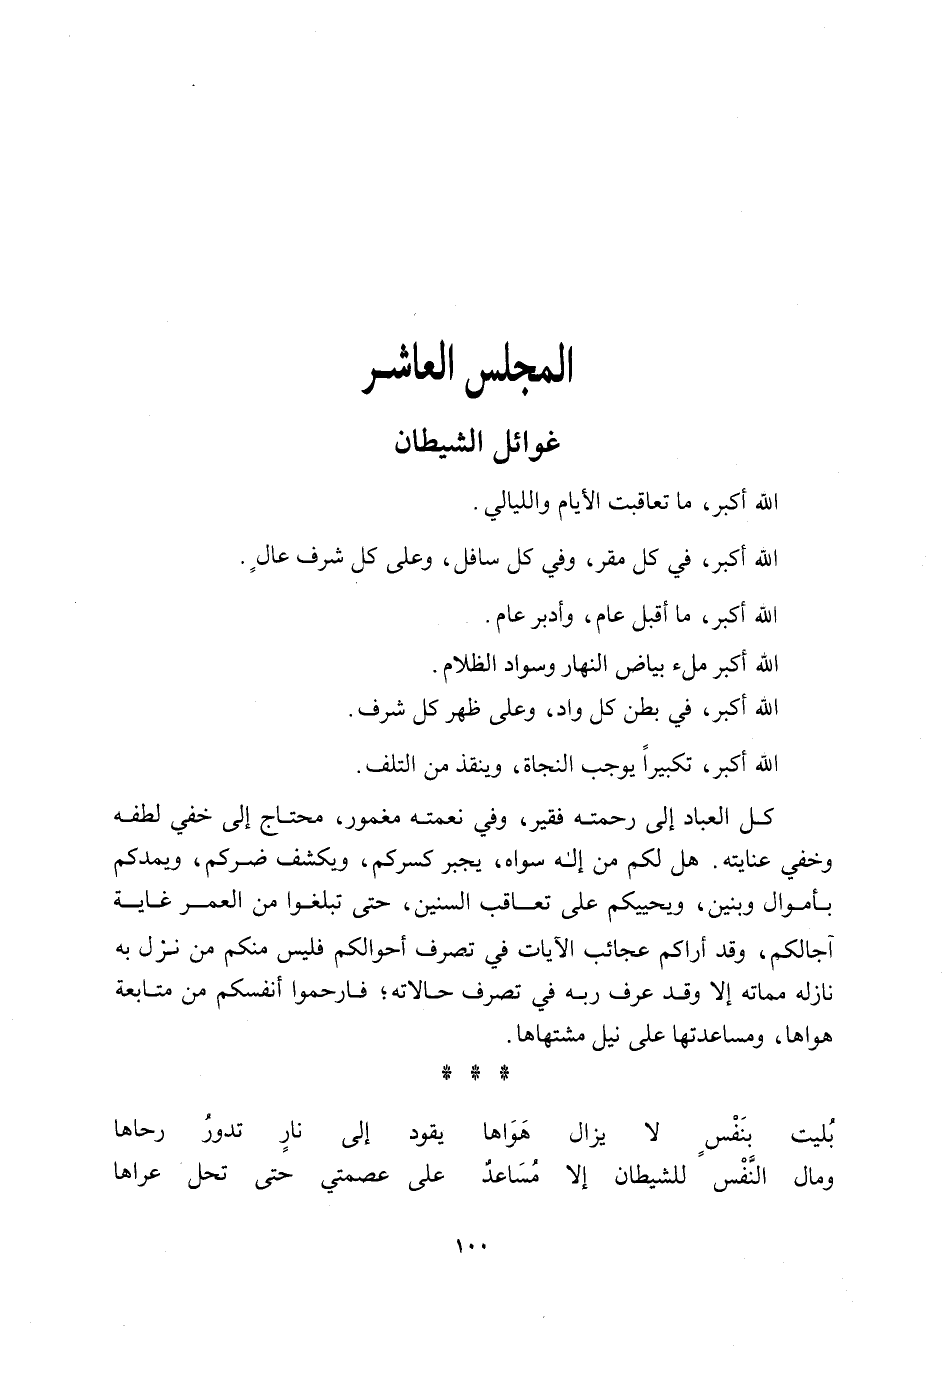 المجلس العاشر
غوائل الشيطان
الله أكبر، ما تعاقبت الأيام والليالي.
الله أكبر، في كل مقر، وفي كل سافل، وعلى كل شرف عالٍ.
الله أكبر، ما أقبل عام، وأدبر عام.
الله أكبر ملء بياض النهار وسواد الظلام.
الله أكبر، في بطن كل واد، وعلى ظهر كل شرف.
الله أكبر، تكبيراً يوجب النجاة، وينقذ من التلف.
كل العباد إلى رحمته فقير، وفي نعمته مغمور، محتاج إلى خفي لطفه
وخفي عنايته. هل لكم من إله سواه، يجبر كسركم، ويكشف ضركم، ويمدكم
بأموال وبنين، ويحييكم على تعاقب السنين، حتى تبلغوا من العمر غاية
آجالكم، وقد أراكم عجائب الآيات في تصرف أحوالكم فليس منكم من نزل به
نازله مماته إلا وقد عرف ربه في تصرف حالاته؛ فارحموا أنفسكم من متابعة
هواها، ومساعدتها على نيل مشتهاها.
* * *
بُليت بِنَفْسٍ لا يزال هَوَاها يقود إلى نارٍ تدورُ رحاها
ومال النَّفْس للشيطان إلا مُسَاعدٌ على عصمتي حتى تحل عراها
١٠٠